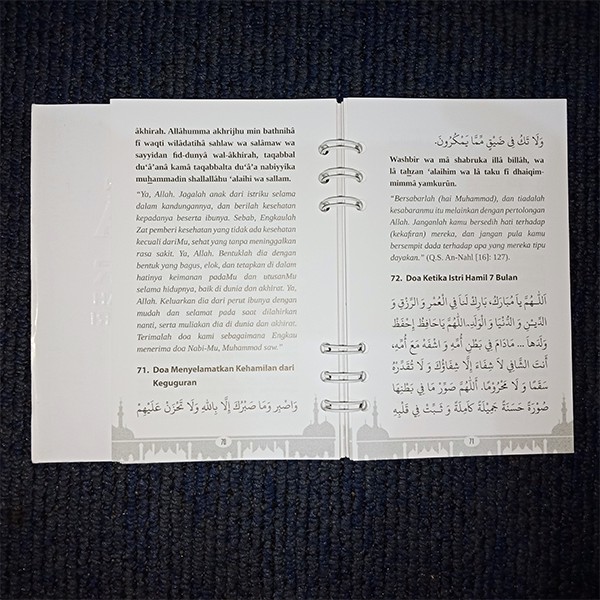 âkhirah. Allâhumma akhrijhu min bathnihâ
fî waqti wilâdatihâ sahlaw wa salâmaw wa
sayyidan fid-dunyâ wal-âkhirah, taqabbal
du'â'anâ kamâ taqabbalta du'â'a nabiyyika
muhammadin shallallâhu 'alaihi wa sallam.
"Ya, Allah. Jagalah anak dari istriku selama
dalam kandungannya, dan berilah kesehatan
kepadanya beserta ibunya. Sebab, Engkaulah
Zat pemberi kesehatan yang tidak ada kesehatan
kecuali dariMu, sehat yang tanpa meninggalkan
rasa sakit. Ya, Allah. Bentuklah dia dengan
bentuk yang bagus, elok, dan tetapkan di dalam
hatinya keimanan padaMu dan utusanMu
selama hidupnya, baik di dunia dan akhirat. Ya,
Allah. Keluarkan dia dari perut ibunya dengan
mudah dan selamat pada saat dilahirkan
nanti, serta muliakan dia di dunia dan akhirat.
Terimalah doa kami sebagaimana Engkau
menerima doa Nabi-Mu, Muhammad saw."
71. Doa Menyelamatkan Kehamilan dari
Keguguran
وَاصْبِرْ وَمَا صَبْرُكَ إِلَّا بِاللهِ وَلَا تَحْزَنْ عَلَيْهِمْ
70
وَلَا تَكُ فِي ضَيْقٍ مِّمَّا يَمْكُرُونَ.
Washbir wa mâ shabruka illâ billâh, wa
lâ tahzan 'alaihim wa lâ taku fî dhaiqim-
mimmâ yamkurûn.
"Bersabarlah (hai Muhammad), dan tiadalah
kesabaranmu itu melainkan dengan pertolongan
Allah. Janganlah kamu bersedih hati terhadap
(kekafiran) mereka, dan jangan pula kamu
bersempit dada terhadap apa yang mereka tipu
dayakan." (Q.S. An-Nahl [16]: 127).
72. Doa Ketika Istri Hamil 7 Bulan
اَللّٰهُمَّ يَا مُبَارَكُ، بَارِكْ لَنَا فِي الْعُمْرِ وَ الرِّزْقِ وَ
الدِّيْنِ وَ الدُّنْيَا وَ الْوَلَدِ. اَللّٰهُمَّ يَاحَافِظُ إِحْفَظْ
وَلَدَهَا ... مَادَامَ فِي بَطْنِ أُمِّهِ وَ اشْفِهِ مَعَ أُمِّهِ،
أَنْتَ الشَّافِي لَا شِفَاءَ إِلَّا شِفَاؤُكَ وَ لَا تُقَدِّرْهُ
سَقَمًا وَ لَا مَحْرُوْمًا. اَللّٰهُمَّ صَوِّرْ مَا فِي بَطْنِهَا
صُوْرَةً حَسَنَةً جَمِيْلَةً كَامِلَةً وَ ثَبِّتْ فِي قَلْبِهِ
71